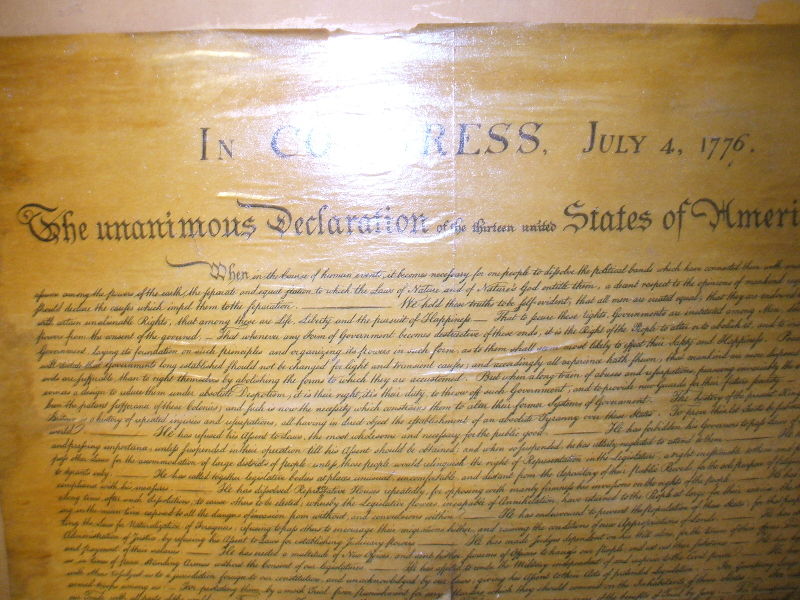 IN CO RESS, JULY 4, 1776.
The unanimous Declaration of the thirteen united States of Ameri
When in the Course of human events, it becomes necessary for one people to dissolve the political bands which have connected them with
among the powers of the earth, the separate and equal station to which the Laws of Nature and of Nature's God entitle them, a decent respect to the opinions of mankind
should declare the causes which impel them to the separation — We hold these truths to be self-evident, that all men are created equal, that they are endowed
with certain unalienable Rights, that among these are Life, Liberty and the pursuit of Happiness — That to secure these rights, Governments are instituted among Men,
powers from the consent of the governed, — That whenever any Form of Government becomes destructive of these ends, it is the Right of the People to alter or to abolish it, and to
Government, laying its foundation on such principles and organizing its powers in such form, as to them shall seem most likely to effect their Safety and Happiness.
that Governments long established should not be changed for light and transient causes; and accordingly all experience hath shewn, that mankind are more disposed
are sufferable, than to right themselves by abolishing the forms to which they are accustomed. But when a long train of abuses and usurpations, pursuing invariably the
a design to reduce them under absolute Despotism, it is their right, it is their duty, to throw off such Government, and to provide new Guards for their future security.
been the patient sufferance of these Colonies; and such is now the necessity which constrains them to alter their former Systems of Government. The history of the present King
is a history of repeated injuries and usurpations, all having in direct object the establishment of an absolute Tyranny over these States. To prove this, let Facts be
world. — He has refused his Assent to Laws, the most wholesome and necessary for the public good. — He has forbidden his Governors to pass Laws of
and pressing importance, unless suspended in their operation till his Assent should be obtained; and when so suspended, he has utterly neglected to attend to them.
other Laws for the accommodation of large districts of people, unless those people would relinquish the right of Representation in the Legislature, a right inestimable to them
to tyrants only. — He has called together legislative bodies at places unusual, uncomfortable, and distant from the depository of their public Records, for the sole purpose of
compliance with his measures. — He has dissolved Houses repeatedly, for opposing with manly firmness his invasions on the rights of the people.
long time, after such dissolutions, to cause others to be elected; whereby the Legislative powers, incapable of Annihilation, have returned to the People at large for their exercise;
in the mean time exposed to all the dangers of invasion from without, and convulsions within. — He has endeavoured to prevent the population of these States; for that
the Laws for Naturalization of Foreigners; refusing to pass others to encourage their migrations hither, and raising the conditions of new Appropriations of Lands.
Administration of Justice, by refusing his Assent to Laws for establishing Judiciary powers. — He has made Judges dependent on his Will alone, for the tenure of their
and payment of their salaries. — He has erected a multitude of New Offices, and sent hither swarms of Officers to harass our People, and eat out their substance.
in times of peace, Standing Armies without the consent of our legislatures. — He has affected to render the Military independent of and superior to the Civil power.
to a jurisdiction foreign to our constitution, and unacknowledged by our laws; giving his Assent to their Acts of pretended Legislation:
armed troops among us: — For protecting them, by a mock Trial, from punishment for any Murders which they should commit on the Inhabitants of these States: